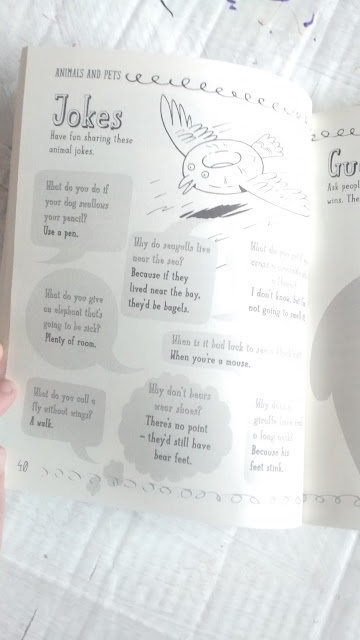 ANIMALS AND PETS
Jokes
Have fun sharing these
animal jokes.
What do you do if
your dog swallows
your pencil?
Use a pen.
Why do seagulls live
near the sea?
Because if they
lived near the bay,
they'd be bagels.
What do you
I don't know, but I'm
not going to
What do you give
an elephant that's
going to be sick?
Plenty of room.
When is it bad luck to see a
When you're a mouse.
What do you call a
fly without wings?
A walk.
Why don't bears
wear shoes?
There's no point
– they'd still have
bear feet.
Why
giraffe
a long neck?
Because his
feet stink.
40
Ask peopl
wins. The